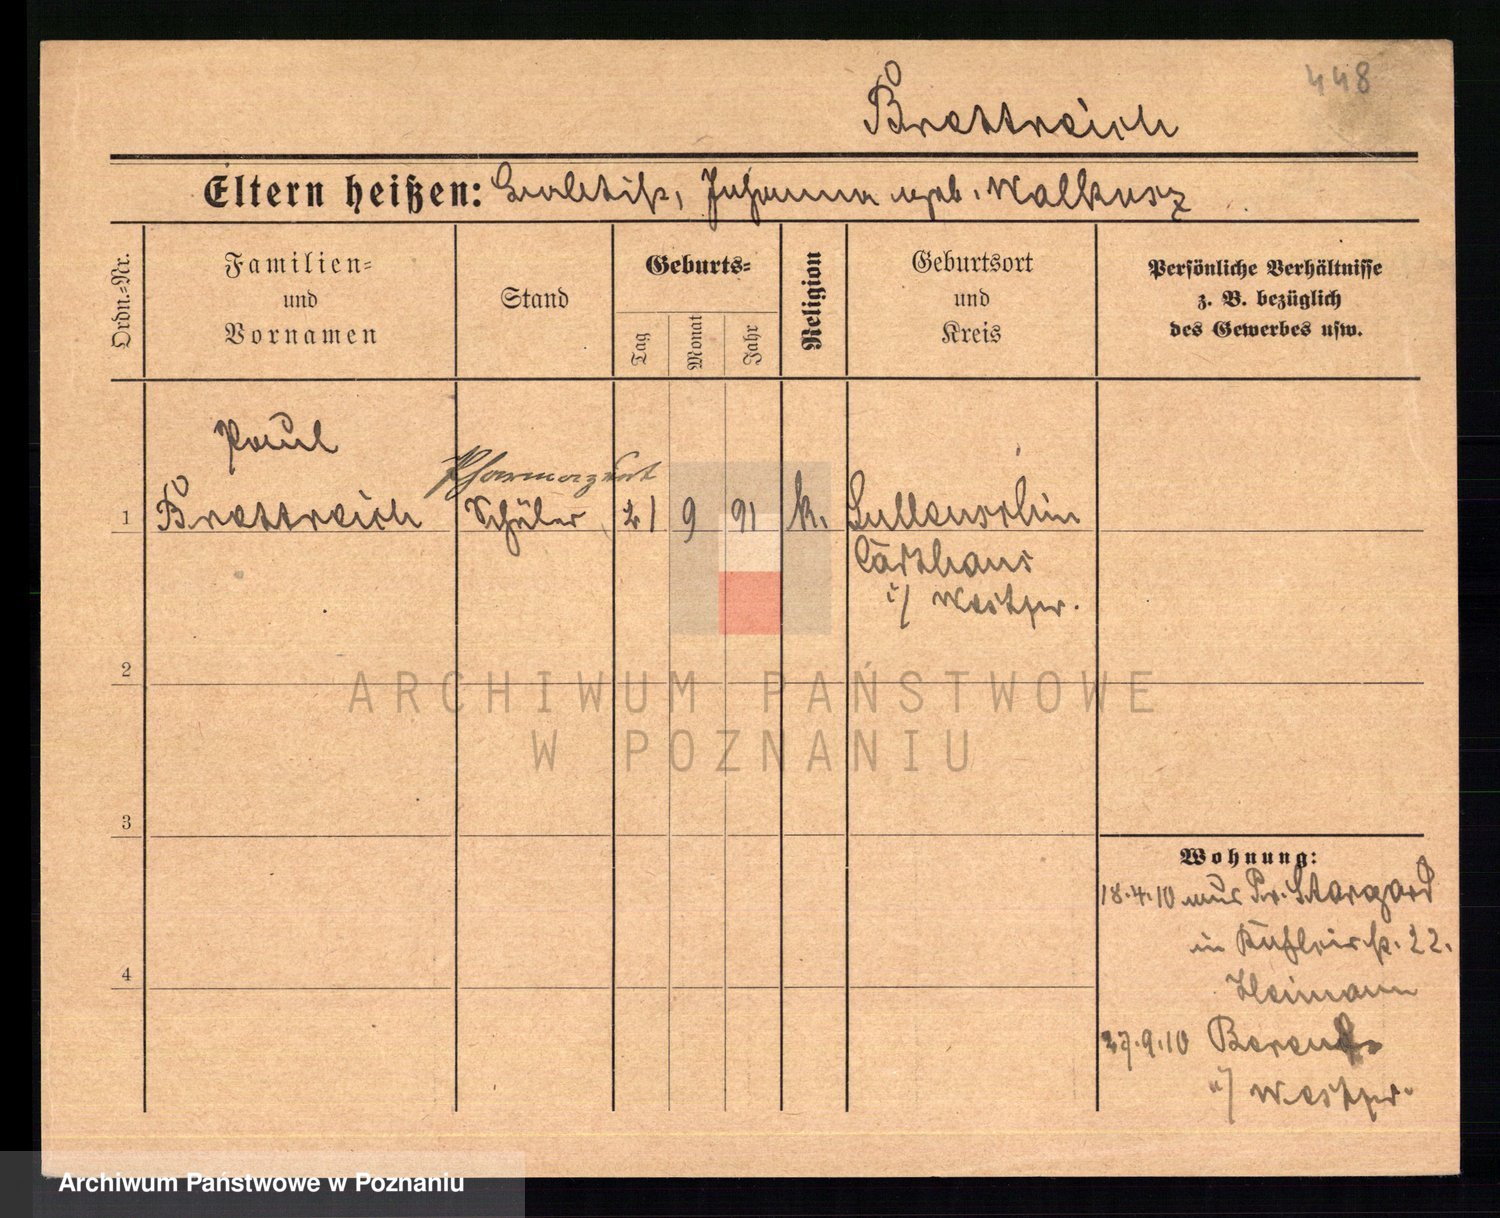 448
Brettreich
Eltern heißen: Johanna geb. Walkusz
Ordn.-Nr.
Familien-
und
Vornamen
Stand
Geburts-
Tag
Monat
Jahr
Religion
Geburtsort
und
Kreis
Persönliche Verhältnisse
z. B. bezüglich
des Gewerbes usw.
Paul
Pharmazeut
1 Brettreich Schüler 21 9 91 k. Sullenschin
Carthaus
i/ Westpr.
2
ARCHIWUM PAŃSTWOWE
W POZNANIU
3
Wohnung:
18.4.10 aus Pr. Stargard
in 22.
Heimann
27.9.10 Berent
i/ Westpr.
4
Archiwum Państwowe w Poznaniu